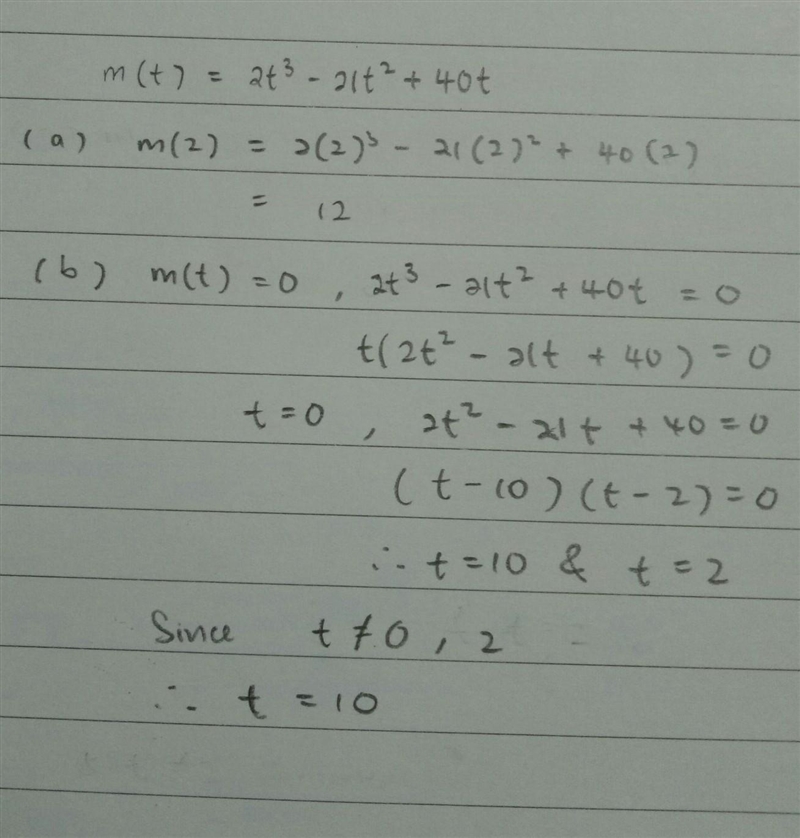 m(t) = 2t³ - 21t² + 40t
(a) m(2) = 2(2)³ - 21(2)² + 40(2)
= 12
(b) m(t) = 0 , 2t³ - 21t² + 40t = 0
t(2t² - 21t + 40) = 0
t = 0 , 2t² - 21t + 40 = 0
(t - 10)(t - 2) = 0
∴ t = 10 & t = 2
Since t ≠ 0 , 2
∴ t = 10